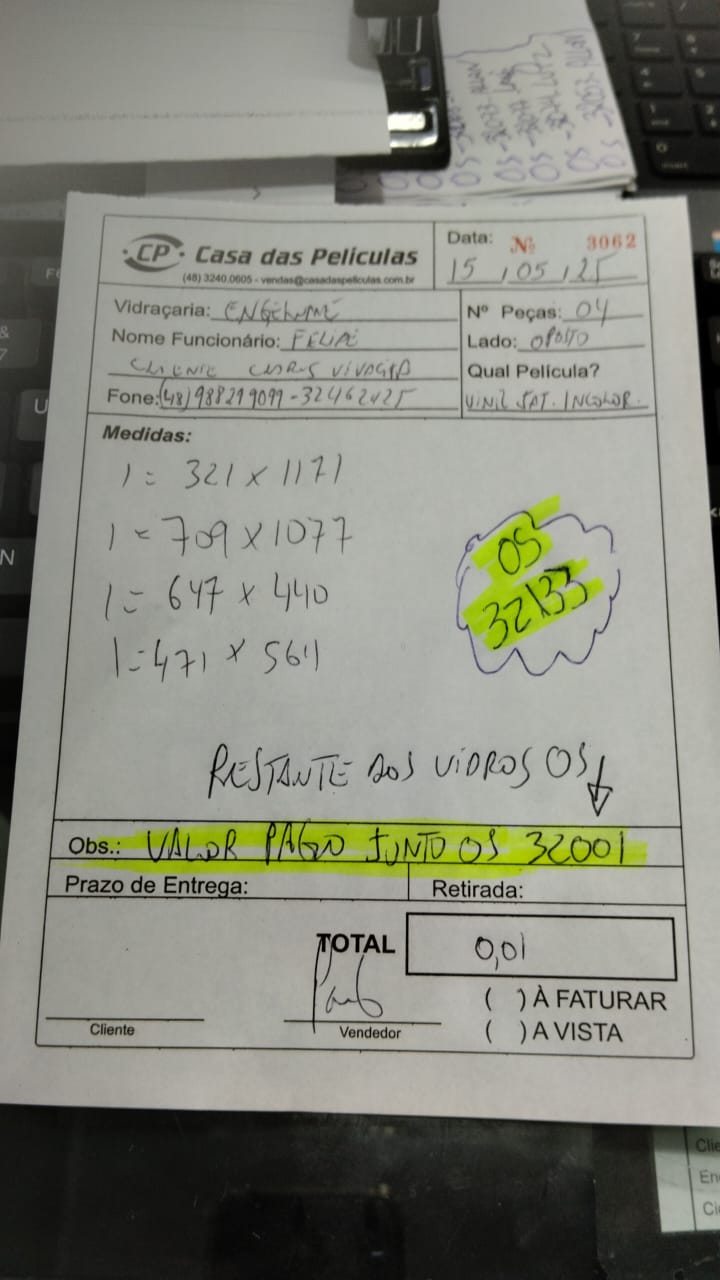 CP Casa das Películas
(48) 3240.0605 - vendas@casadaspeliculas.com.br
Data: Nº 3062
15 / 05 / 25
Vidraçaria:
Nome Funcionário: FELIPE
CLIENTE
Fone: (48) 988299099 - 32462425
Nº Peças: 04
Lado: OPOSTO
Qual Película?
VINIL JAT. INCOLOR.
Medidas:
1 = 321 x 1171
1 = 709 x 1077
1 = 647 x 440
1 = 471 x 564
OS
32133
RESTANTE DOS VIDROS OS ↓
Obs.: VALOR PAGO JUNTO OS 32001
Prazo de Entrega: Retirada:
TOTAL 0,01
( ) À FATURAR
( ) A VISTA
Cliente Vendedor